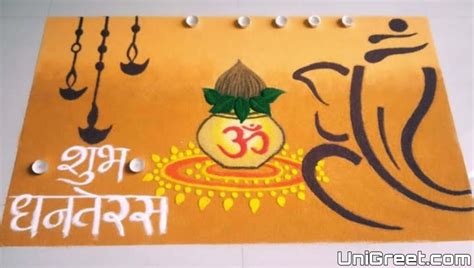 ॐ
शुभ
धनतेरस
UniGreet.com